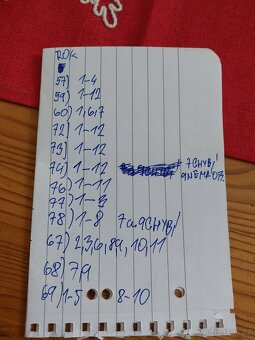 ROK
57) 1-4
59) 1-12
60) 1,6,7
72) 1-12
73) 1-12
74) 1-12 7 CHYBÍ
9 NEMÁ
76) 1-11
77) 1-
78) 1-8 7 a 9 CHYBÍ
67) 2,3,6,89,10,11
68) 7,9
69) 1-5 8-10